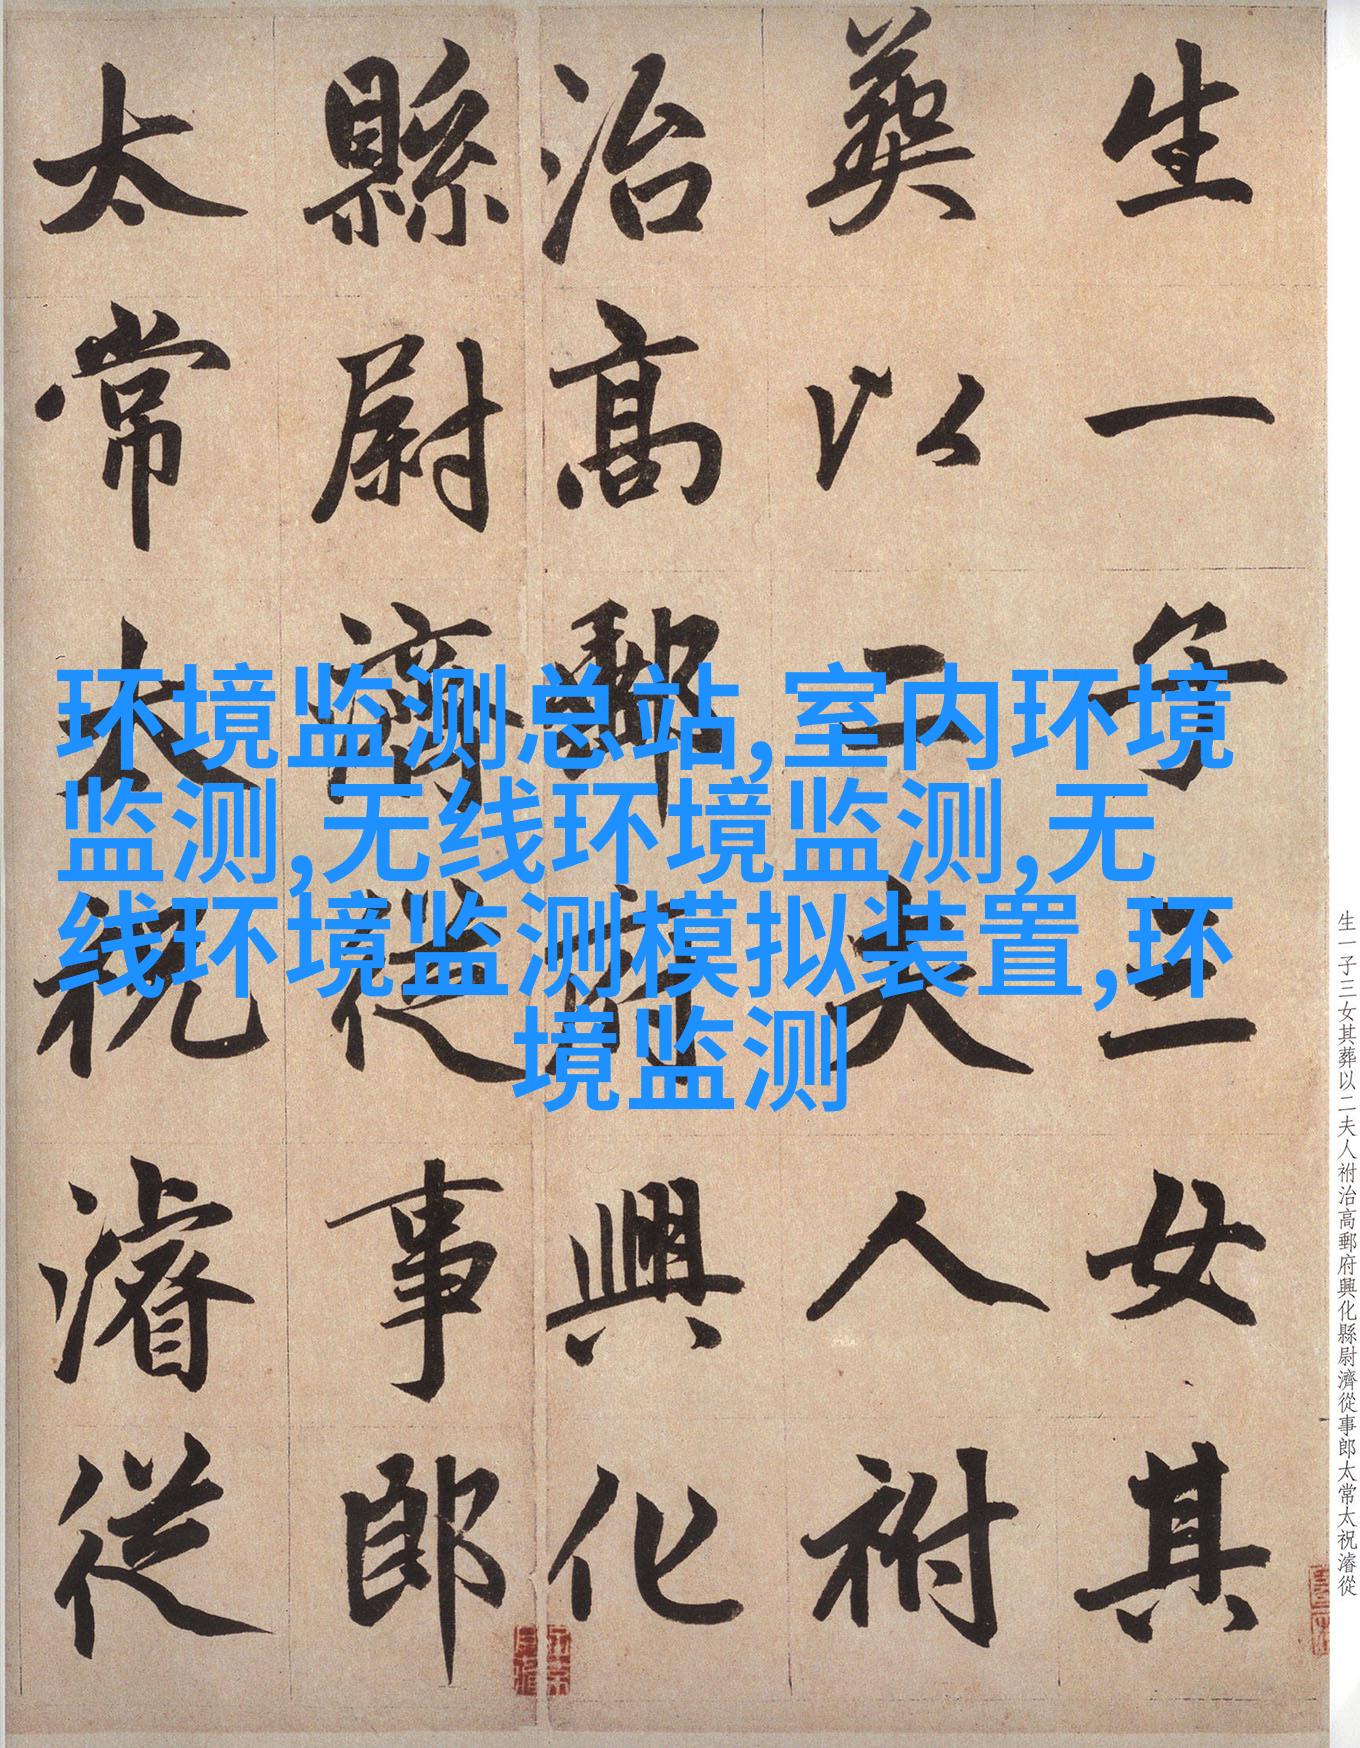 生一子三女其
葬以二夫人祔
治高郵府興化
縣尉濟從事郎
太常太祝濬從
环境监测总站,室内环境
监测,无线环境监测,无
线环境监测模拟装置,环
境监测
生一子三女其葬以二夫人祔治高郵府興化縣尉濟從事郎太常太祝濬從